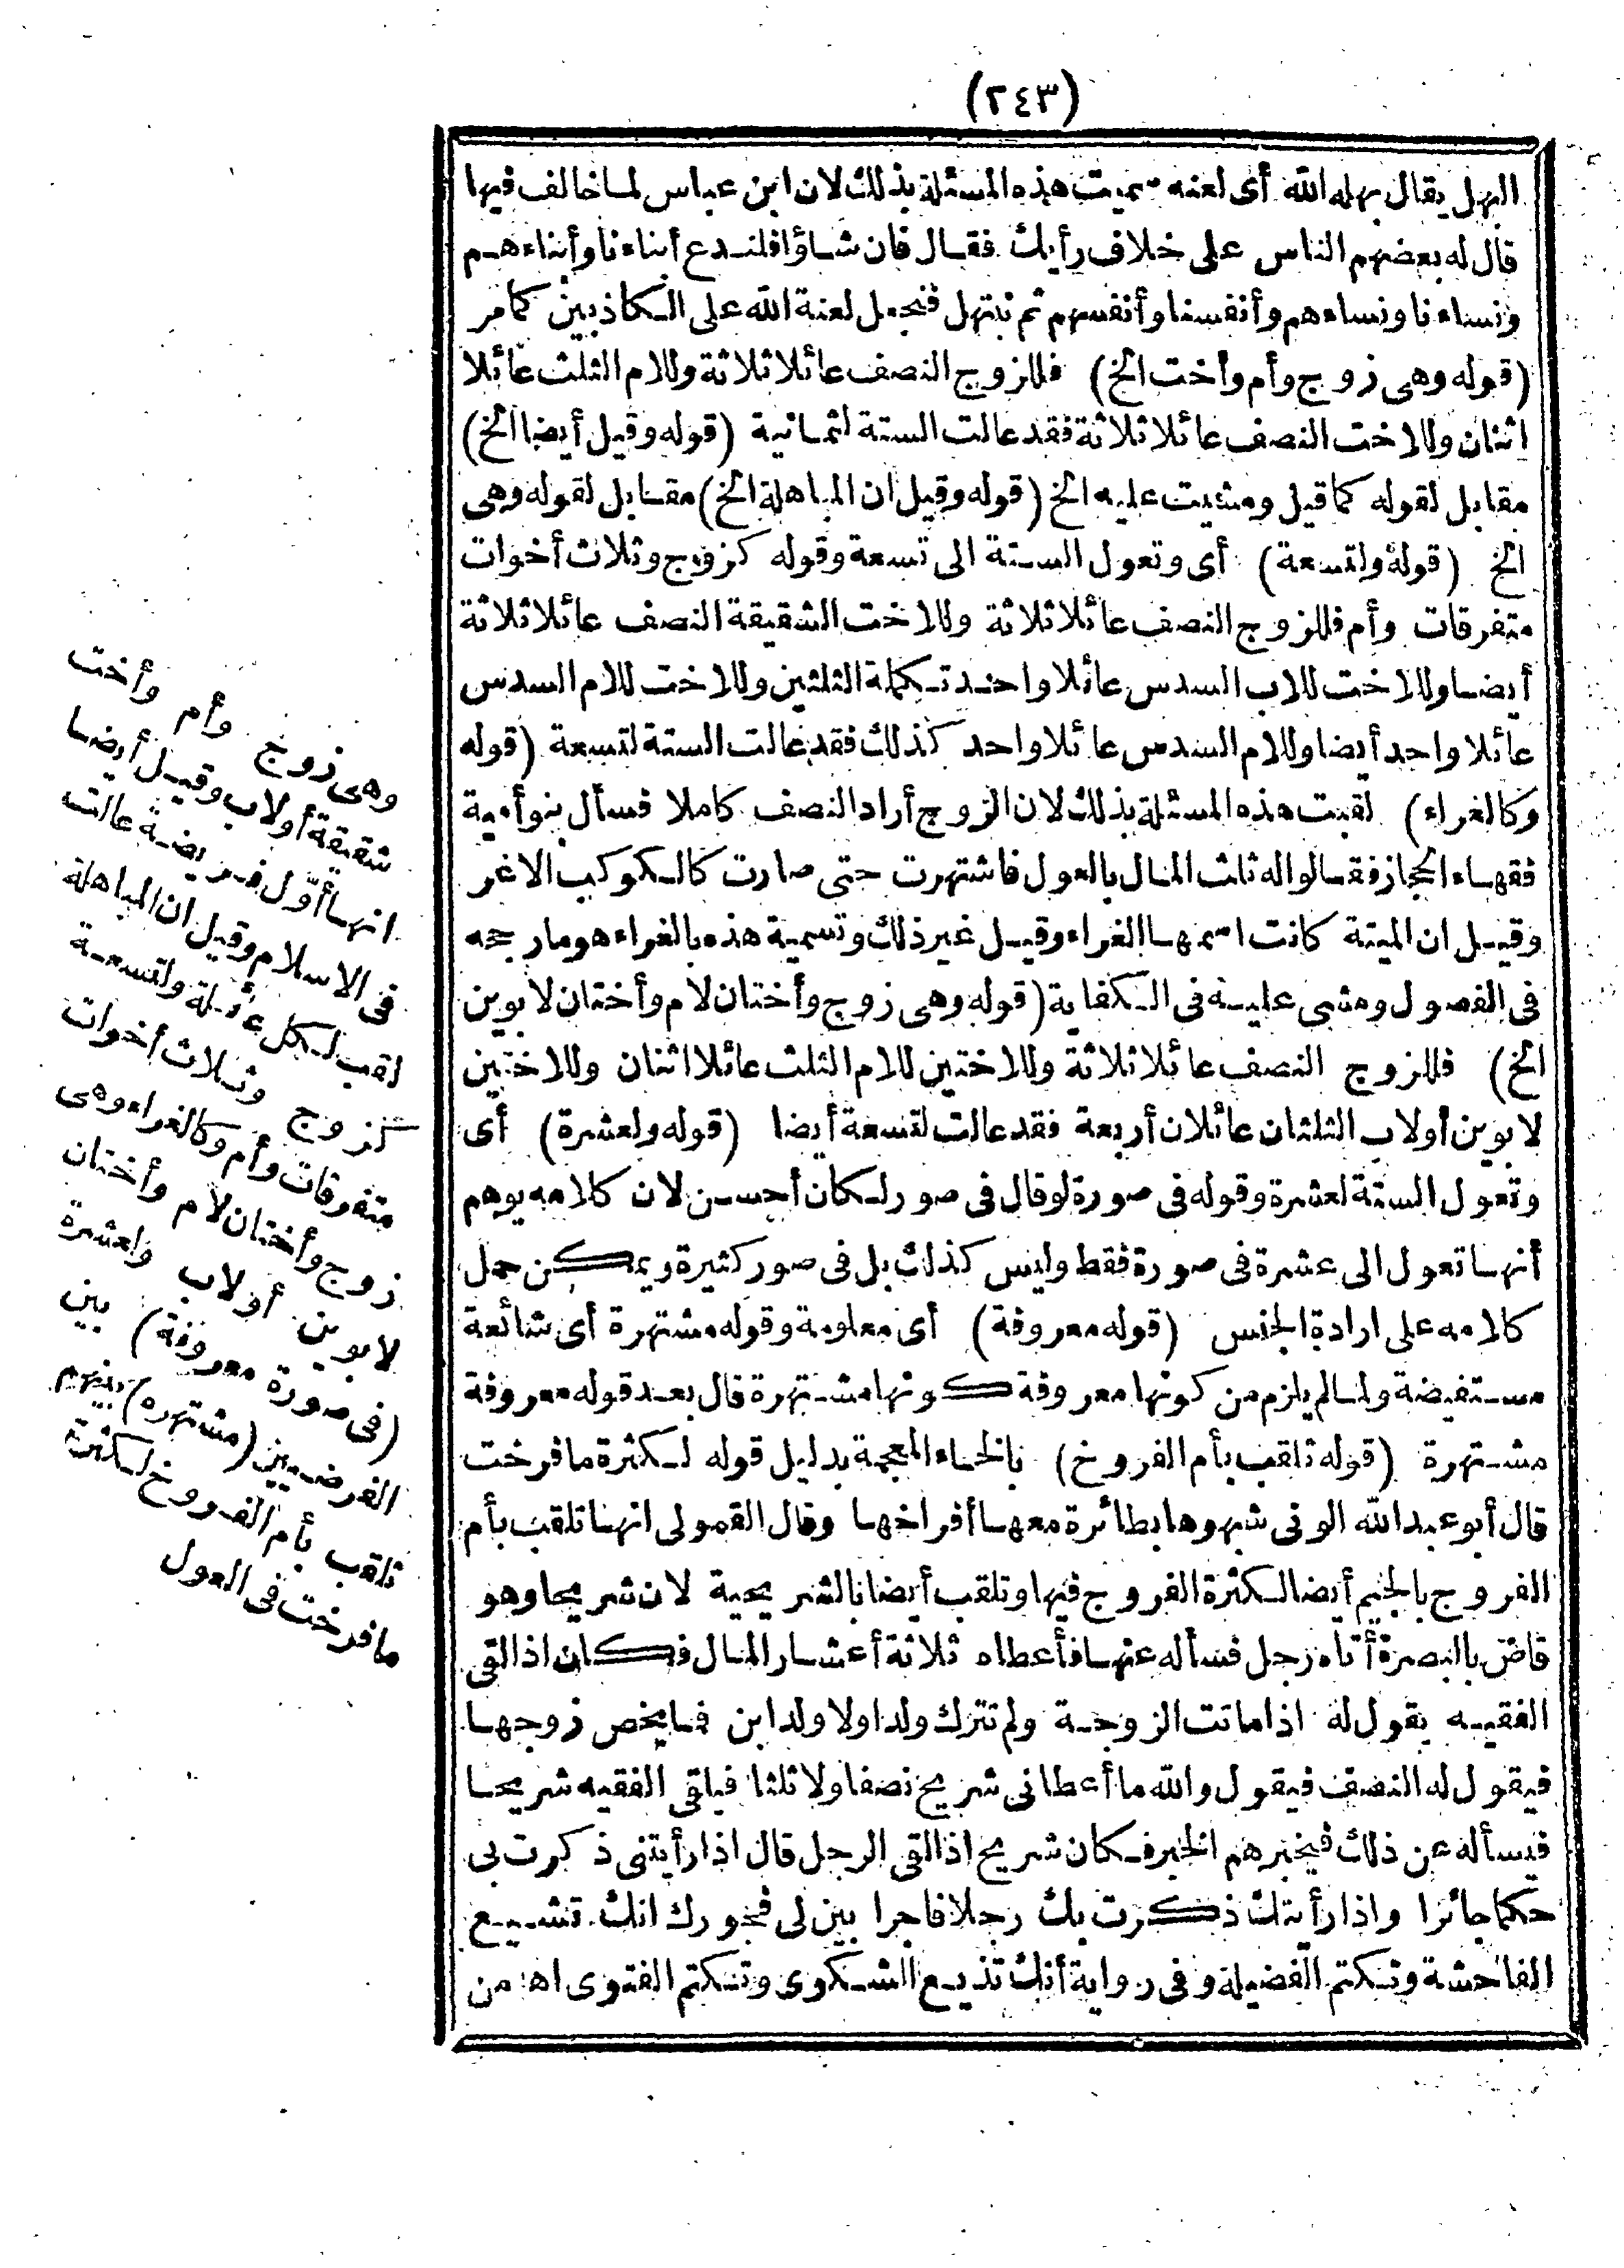 (٢٤٣)
البهل يقال بهله الله أى لعنه سميت هذه المسئلة بذلك لان ابن عباس لما خالف فيها
قال له بعضهم الناس على خلاف رأيك فقال فان شاؤا فلندع أبناءنا وأبناءهم
ونساءنا ونساءهم وأنفسنا وأنفسهم ثم نبتهل فنجعل لعنة الله على الكاذبين كما مر
(قوله وهى زوج وأم وأخت الخ) فللزوج النصف عائلا ثلاثة وللام الثلث عائلا
اثنان وللاخت النصف عائلا ثلاثة فقد عالت الستة لثمانية (قوله وقيل أيضا الخ)
مقابل لقوله كما قيل ومشيت عليه الخ (قوله وقيل ان المباهلة الخ) مقابل لقوله وهى
الخ (قوله ولتسعة) أى وتعول الستة الى تسعة وقوله كزوج وثلاث أخوات
متفرقات وأم فللزوج النصف عائلا ثلاثة وللاخت الشقيقة النصف عائلا ثلاثة
أيضا وللاخت للاب السدس عائلا واحد تكملة الثلثين وللاخت للام السدس
عائلا واحد أيضا وللام السدس عائلا واحد كذلك فقد عالت الستة لتسعة (قوله
وكالغراء) لقبت هذه المسئلة بذلك لان الزوج أراد النصف كاملا فسأل بنو أمية
فقهاء الحجاز فقالوا له ثلث المال بالعول فاشتهرت حتى صارت كالكوكب الاغر
وقيل ان الميتة كانت اسمها الغراء وقيل غير ذلك وتسمية هذه بالغراء هو مارجحه
فى الفصول ومشى عليه فى الكفاية (قوله وهى زوج وأختان لام وأختان لابوين
الخ) فللزوج النصف عائلا ثلاثة وللاختين للام الثلث عائلا اثنان وللاختين
لابوين أولاب الثلثان عائلان أربعة فقد عالت لتسعة أيضا (قوله ولعشرة) أى
وتعول الستة لعشرة وقوله فى صورة لو قال فى صور لكان أحسن لان كلامه يوهم
أنها تعول الى عشرة فى صورة فقط وليس كذلك بل فى صور كثيرة ويمكن حمل
كلامه على ارادة الجنس (قوله معروفة) أى معلومة وقوله مشتهرة أى شائعة
مستفيضة ولما لم يلزم من كونها معروفة كونها مشتهرة قال بعد قوله معروفة
مشتهرة (قوله تلقب بأم الفروخ) بالخاء المعجمة بدليل قوله لكثرة ما فرخت
قال أبو عبد الله الونى شبهوها بطائرة معها أفراخها وقال القمولى انها تلقب بأم
الفروج بالجيم أيضا لكثرة الفروج فيها وتلقب أيضا بالشريحية لان شريحا وهو
قاض بالبصرة أتاه رجل فسأله عنها فأعطاه ثلاثة أعشار المال فكان اذا لقى
الفقيه يقول له اذا ماتت الزوجة ولم تترك ولدا ولا ولد ابن فما يخص زوجها
فيقول له النصف فيقول والله ما أعطانى شريح نصفا ولا ثلثا فيلقى الفقيه شريحا
فيسأله عن ذلك فيخبرهم الخبر فكان شريح اذا لقى الرجل قال اذا رأيتنى ذكرت بى
حكما جائرا واذا رأيتك ذكرت بك رجلا فاجرا بين لى فجورك انك تشيع
الفاحشة وتكتم الفضيلة وفى رواية أنك تذيع الشكوى وتكتم الفتوى اه من
وهى زوج وأم وأخت
شقيقة أولاب وقيل أيضا
انها أول فريضة عالت
فى الاسلام وقيل ان المباهلة
لقب لكل عائلة ولتسعة
كزوج وثلاث أخوات
متفرقات وأم وكالغراء وهى
زوج وأختان لام وأختان
لابوين أولاب ولعشرة
(فى صورة معروفة) بين
الفرضيين (مشتهره) بينهم
تلقب بأم الفروخ لكثرة
ما فرخت فى العول